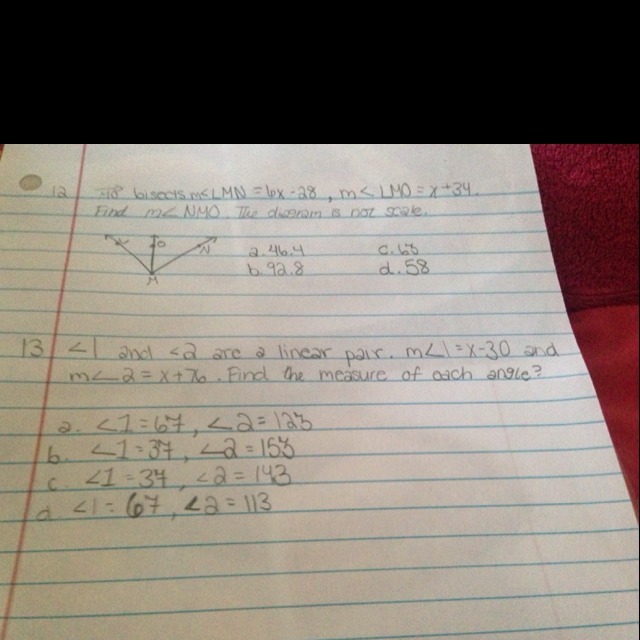 12 bisects m<LMN = 6x-28, m<LMO = x+34.
Find m<NMO. The diagram is not scale.
L O N
a. 46.4 c. 68
b. 92.8 d. 58
M
13 <1 and <2 are a linear pair. m<1=x-30 and
m<2=x+76. Find the measure of each angle?
a. <1=67, <2=123
b. <1=37, <2=153
c <1=37, <2=143
d <1=67, <2=113